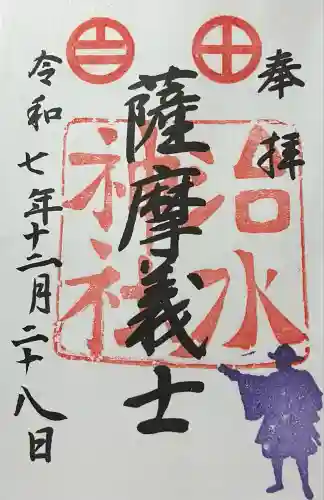 奉拝
薩摩義士
治水神社
令和七年十二月二十八日